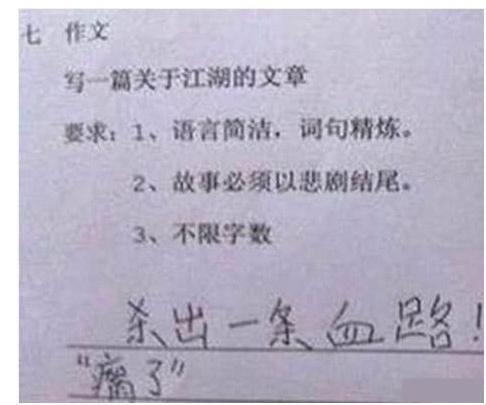 七 作文
写一篇关于江湖的文章
要求：1、语言简洁，词句精炼。
2、故事必须以悲剧结尾。
3、不限字数
杀出一条血路！
“瘸了”